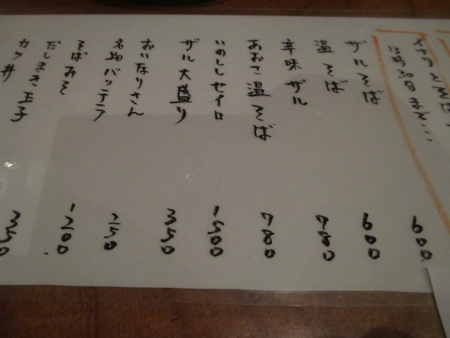 イナリとそば
13時30分まで… 600
ザルそば 600
温そば
辛味ザル 780
あおさ温そば 780
いのししセイロ 1500
ザル大盛り 350
おいなりさん
名物バッテラ 250
そばみそ
だしまき玉子 1200
カツ丼 350